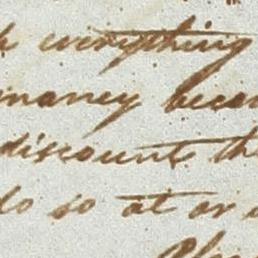 everything
money becom
discount th
do so at or